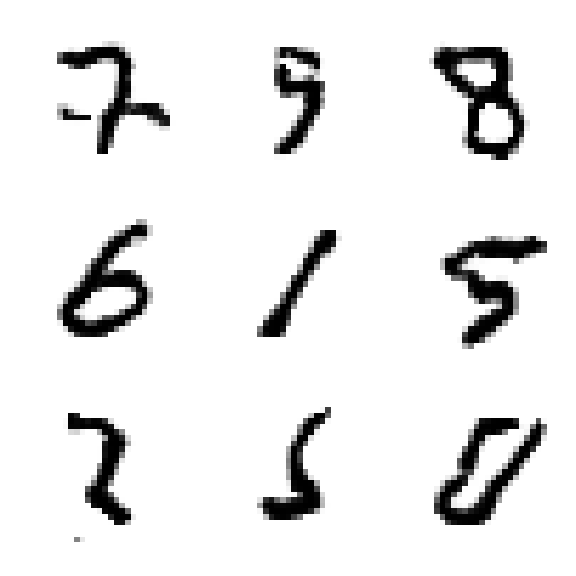 7 9 8
6 1 5
2 5 0